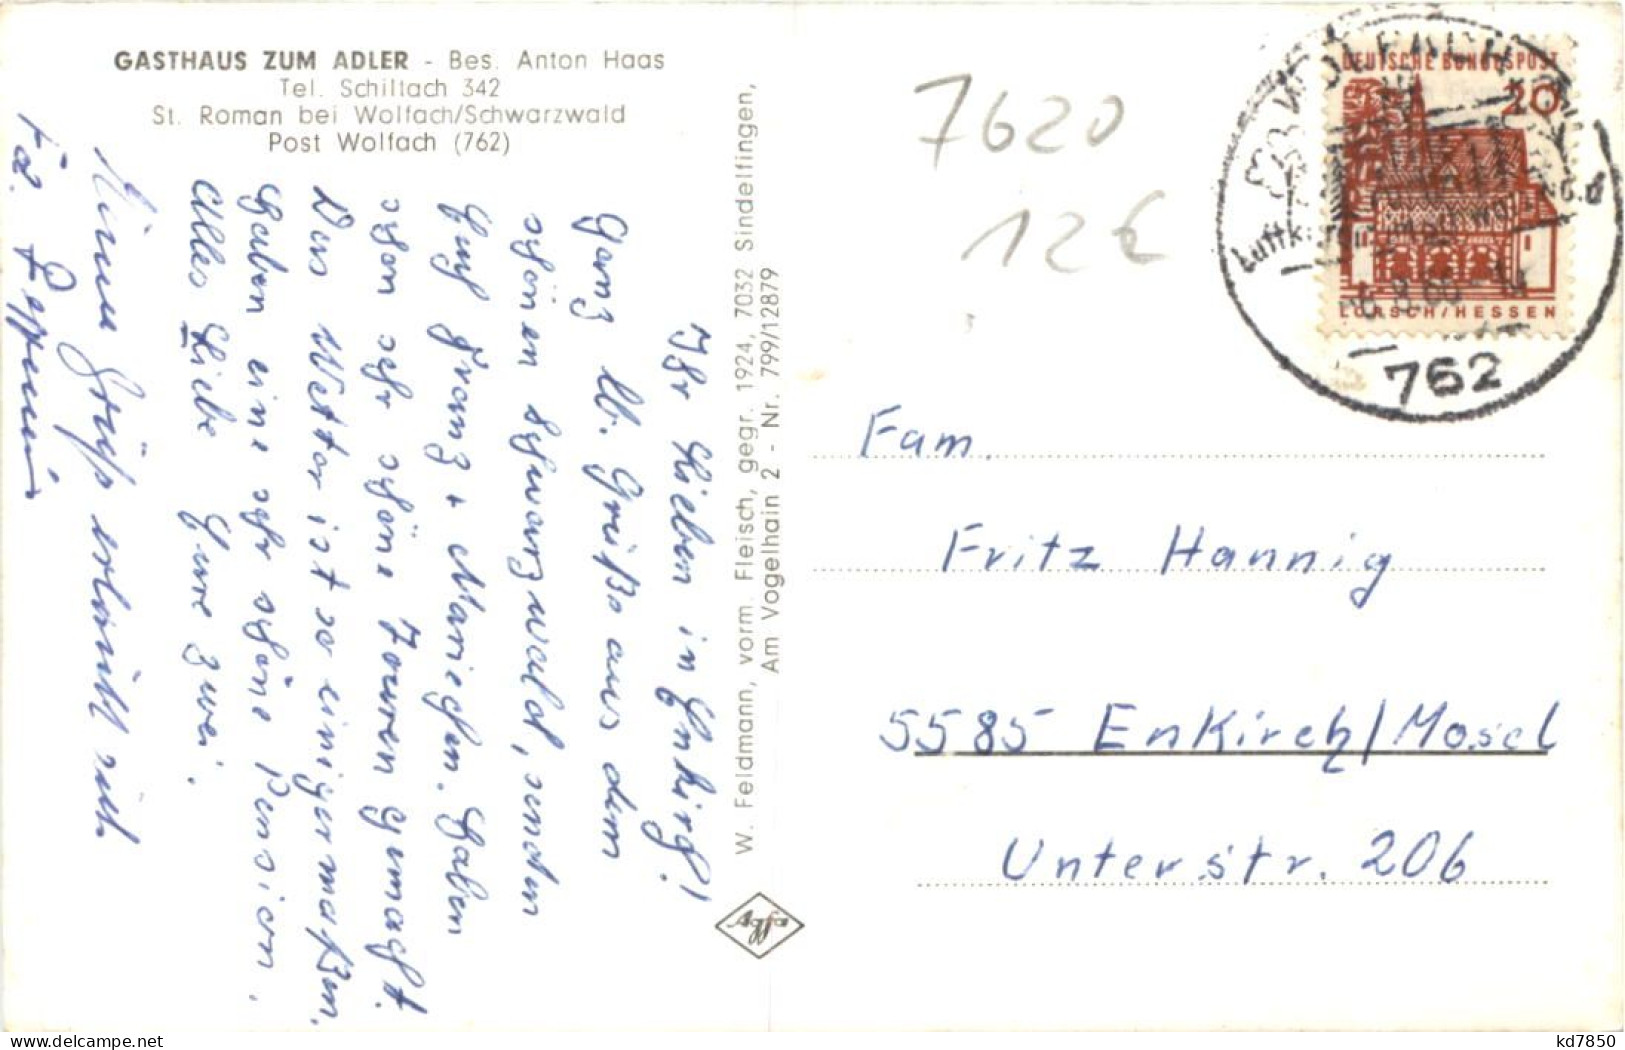 GASTHAUS ZUM ADLER - Bes. Anton Haas
Tel. Schiltach 342
St. Roman bei Wolfach/Schwarzwald
Post Wolfach (762)
Ihr Lieben in Enkirch!
Ganz lb. Grüße aus dem
schönen Schwarzwald, senden
Euch Franz + Mariechen. Haben
schon sehr schöne Touren gemacht.
Das Wetter ist so einigermaßen.
Haben eine sehr schöne Pension.
Alles Liebe Eure zwei.
Einen Gruß erlaubt sich
Fa.
W. Feldmann, vorm. Fleisch, gegr. 1924, 7032 Sindelfingen,
Am Vogelhain 2 - Nr. 799/12879
Agfa
7620
12 €
DEUTSCHE BUNDESPOST
20
LORSCH/HESSEN
WOLFACH
762
Fam.
Fritz Hannig
5585 Enkirch/Mosel
Unterstr. 206
kd7850